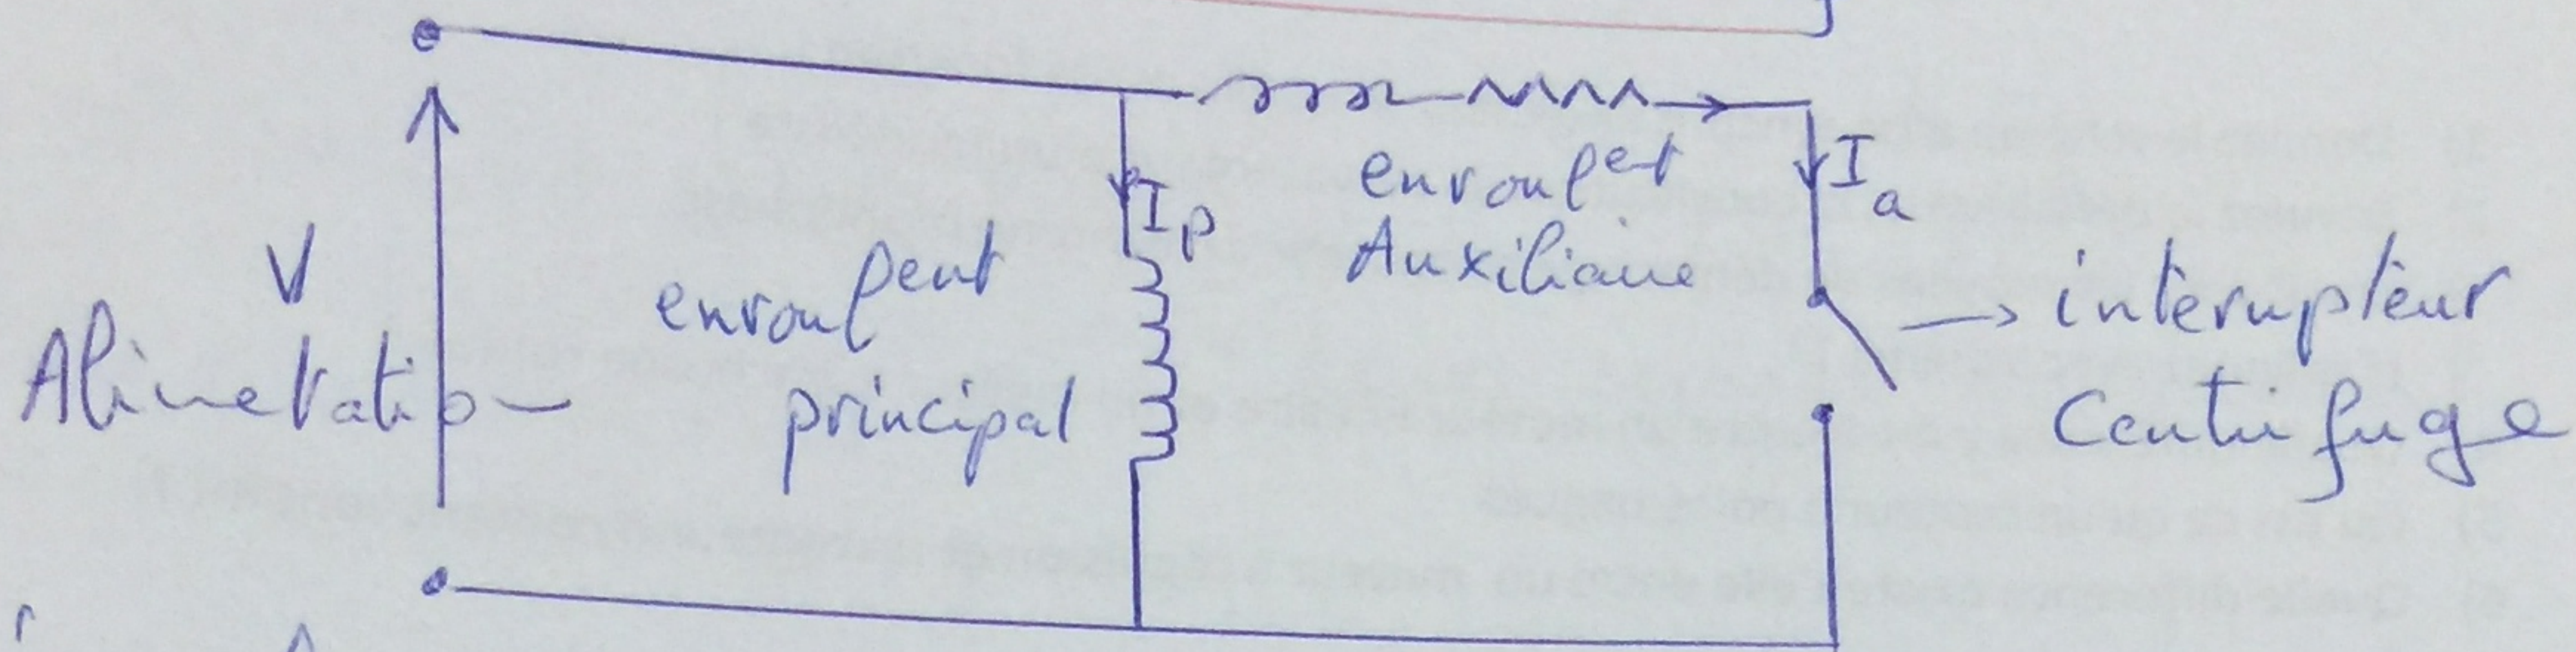 V
Alimetatio
enroulent
principal
Ip
enroulet
Auxiliaire
Ia
interupteur
Centrifuge